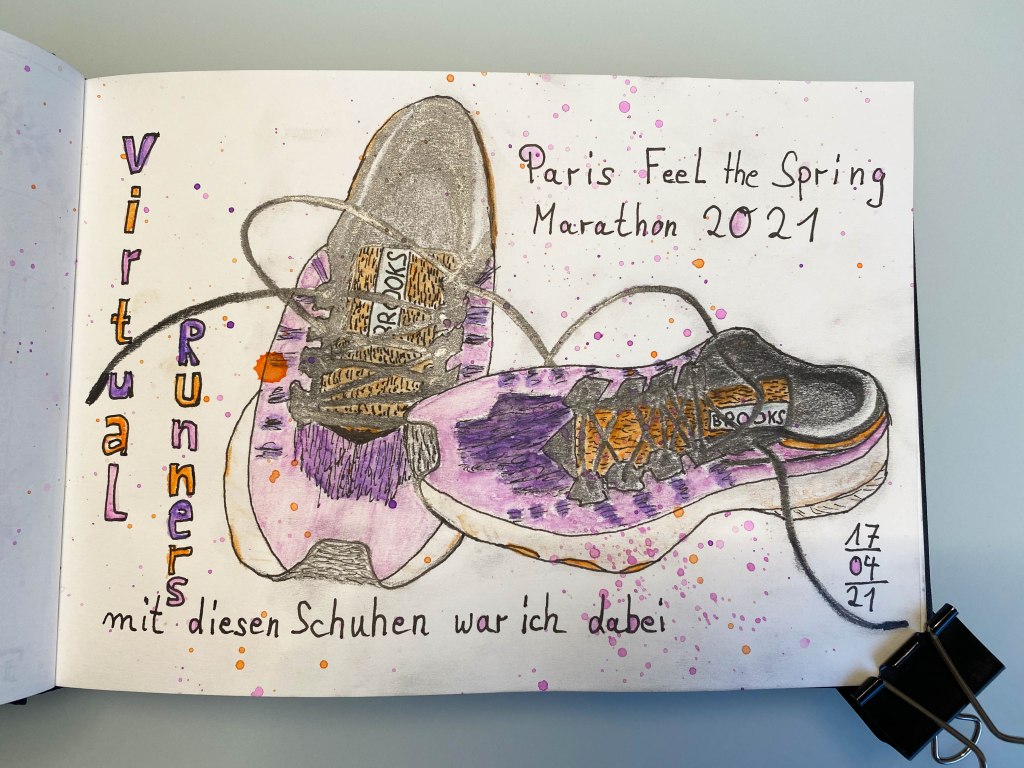 Virtual
Runners
Paris Feel the Spring
Marathon 2021
BROOKS
BROOKS
17
04
21
mit diesen Schuhen war ich dabei